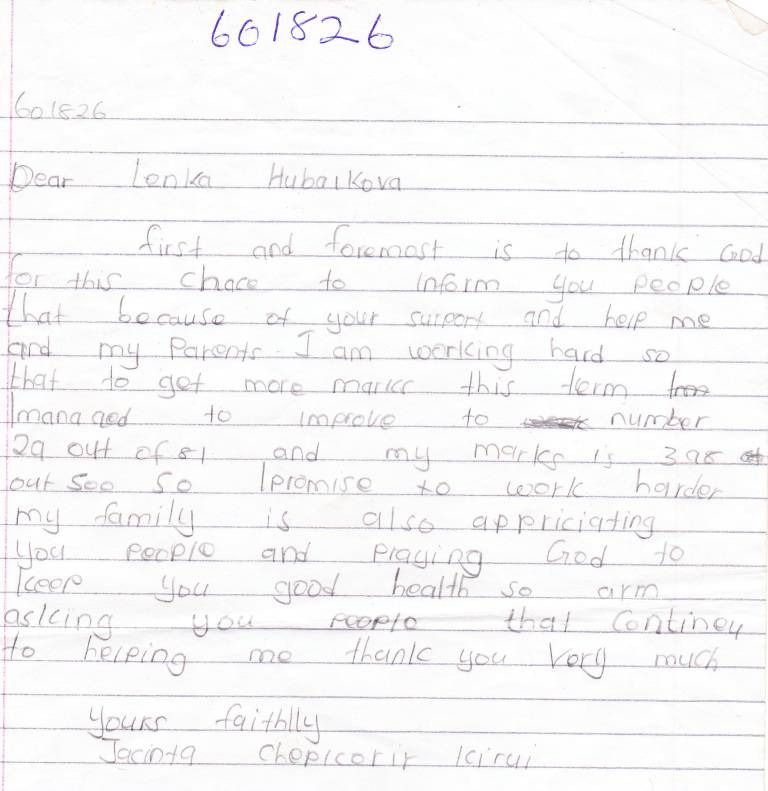 601826
601826
Dear Lenka Hubalkova
first and foremost is to thank God
for this chace to inform you people
that because of your surport and help me
and my Parents. I am working hard so
that to get more marks this term
Imanaged to improve to number
29 out of 81 and my marks is 398
out 500 so Ipromise to work harder
my family is also appriciating
you people and praying God to
keep you good health so arm
asking you people that Continey
to helping me thank you Very much
yours faithlly
Jacinta Chepkorir Kirui